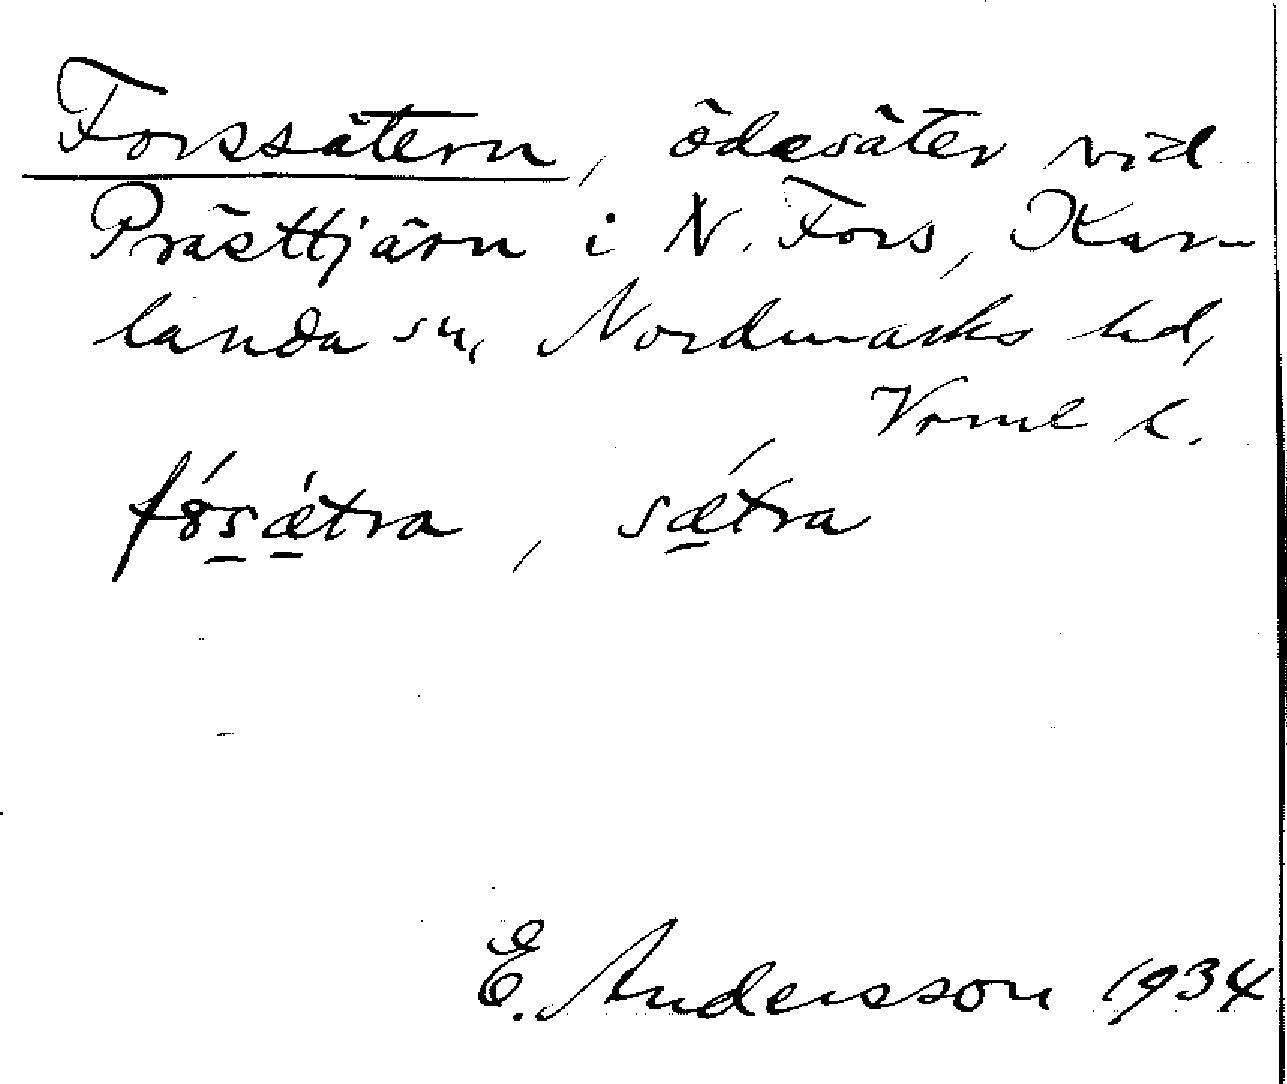 Forssätern, ödesäter vid
Prästtjärn i N. Fors, Kar-
landa sn, Nordmarks hd,
Vrml l.
fósǽtra, sǽtra
E. Andersson 1934